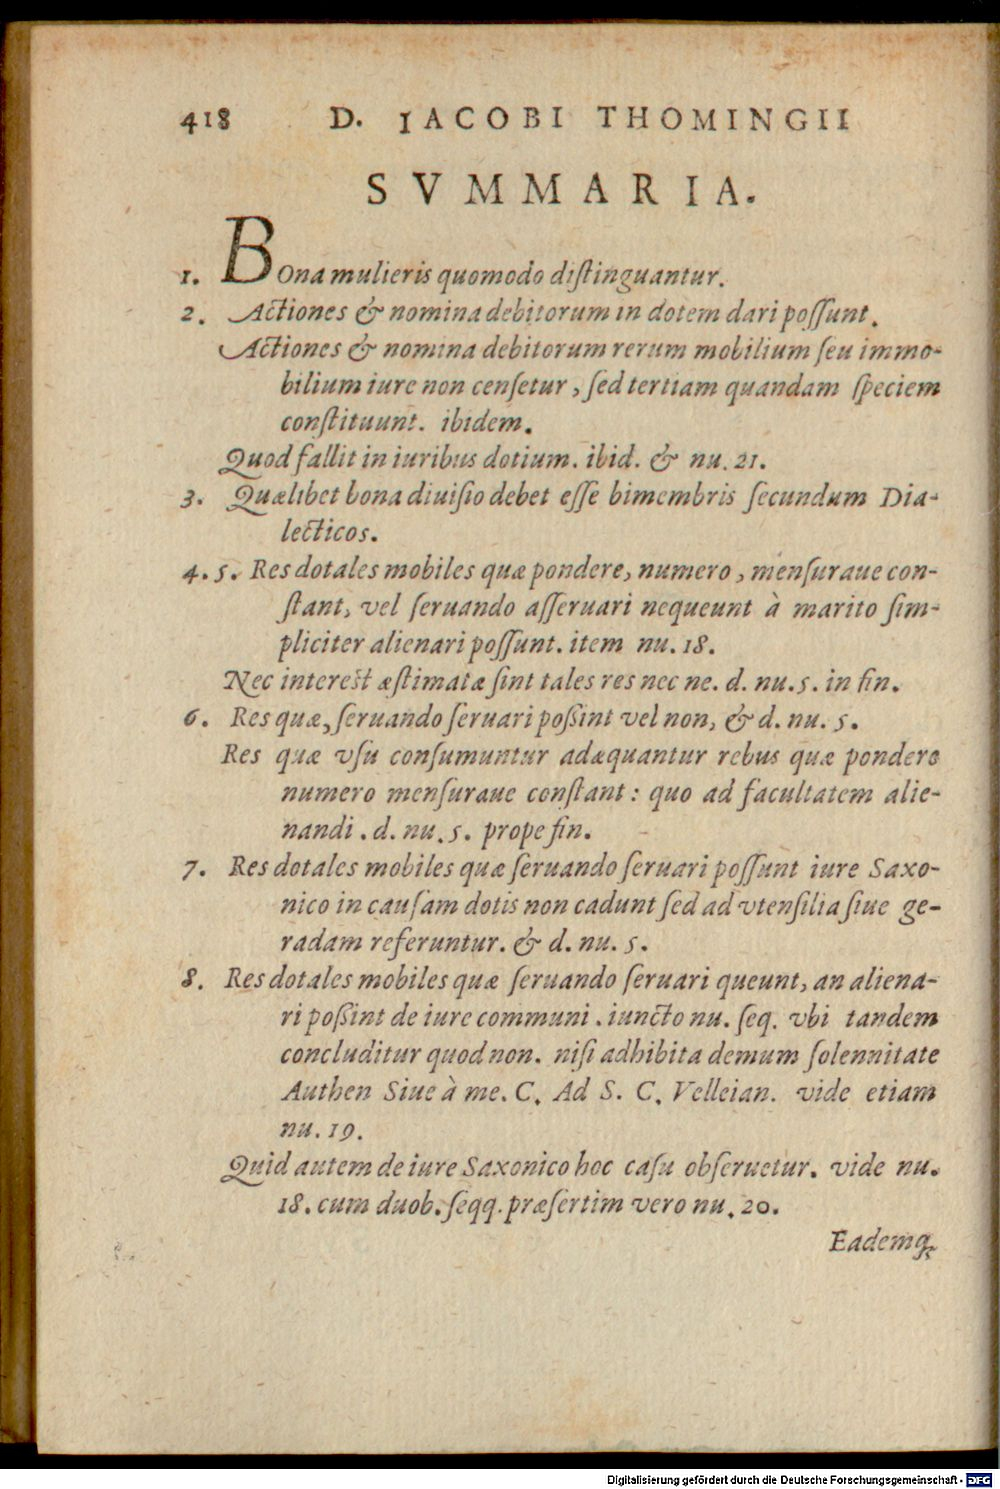 418 D. IACOBI THOMINGII
SVMMARIA.
1. BOna mulieris quomodo diſtinguantur.
2. Actiones & nomina debitorum in dotem dari poſſunt.
Actiones & nomina debitorum rerum mobilium ſeu immo-
bilium iure non cenſetur, ſed tertiam quandam ſpeciem
conſtituunt. ibidem.
Quod fallit in iuribus dotium. ibid. & nu. 21.
3. Quælibet bona diuiſio debet eſſe bimembris ſecundum Dia-
lecticos.
4. 5. Res dotales mobiles quæ pondere, numero, menſuraue con-
ſtant, vel ſeruando aſſeruari nequeunt à marito ſim-
pliciter alienari poſſunt. item nu. 18.
Nec intereſt æſtimatæ ſint tales res nec ne. d. nu. 5. in fin.
6. Res quæ, ſeruando ſeruari poſsint vel non, & d. nu. 5.
Res quæ vſu conſumuntur adæquantur rebus quæ pondere
numero menſuraue conſtant: quo ad facultatem alie-
nandi. d. nu. 5. prope fin.
7. Res dotales mobiles quæ ſeruando ſeruari poſſunt iure Saxo-
nico in cauſam dotis non cadunt ſed ad vtenſilia ſiue ge-
radam referuntur. & d. nu. 5.
8. Res dotales mobiles quæ ſeruando ſeruari queunt, an aliena-
ri poſsint de iure communi. iuncto nu. ſeq. vbi tandem
concluditur quod non. niſi adhibita demum ſolennitate
Authen Siue à me. C. Ad S. C. Velleian. vide etiam
nu. 19.
Quid autem de iure Saxonico hoc caſu obſeruetur. vide nu.
18. cum duob. ſeqq. præſertim vero nu. 20.
Eademq́;
Digitalisierung gefördert durch die Deutsche Forschungsgemeinschaft - DFG